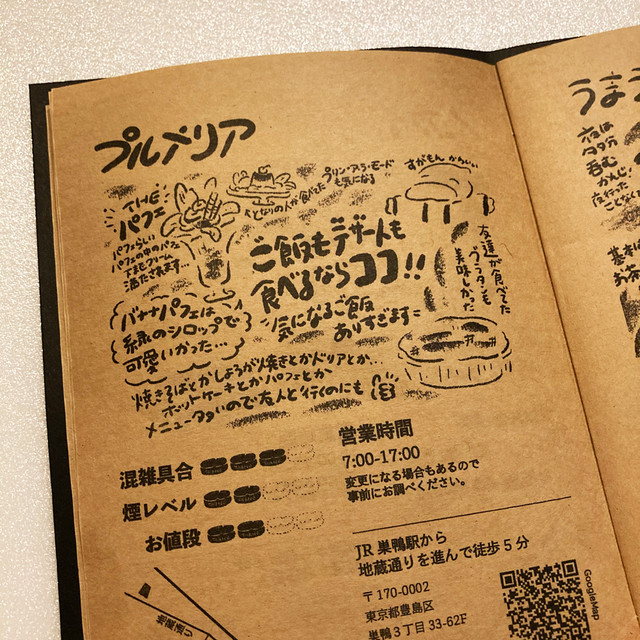 プルメリア
THE
パフェ
パフェらしい
パフェの中のパフェ
下までクリーム
満たされます…
となりの人が食べてた
プリン・アラ・モード
も気になる
すがもん かわいい
ご飯もデザートも
食べるならココ!!
気になるご飯
ありすぎます
友達が食べてた
グラタンも
美味しかった
バナナパフェは
緑のシロップで
可愛いかった…
焼きそばとかしょうが焼きとかドリアとか…
ホットケーキとかパフェとか
メニュー多いので友人と行くのにも
混雑具合
煙レベル
お値段
営業時間
7:00-17:00
変更になる場合もあるので
事前にお調べください。
JR 巣鴨駅から
地蔵通りを進んで徒歩 5 分
〒170-0002
東京都豊島区
巣鴨 3 丁目 33-62F
GoogleMap
地蔵通り
うま
夜は
夕夕分
呑む
かんじ